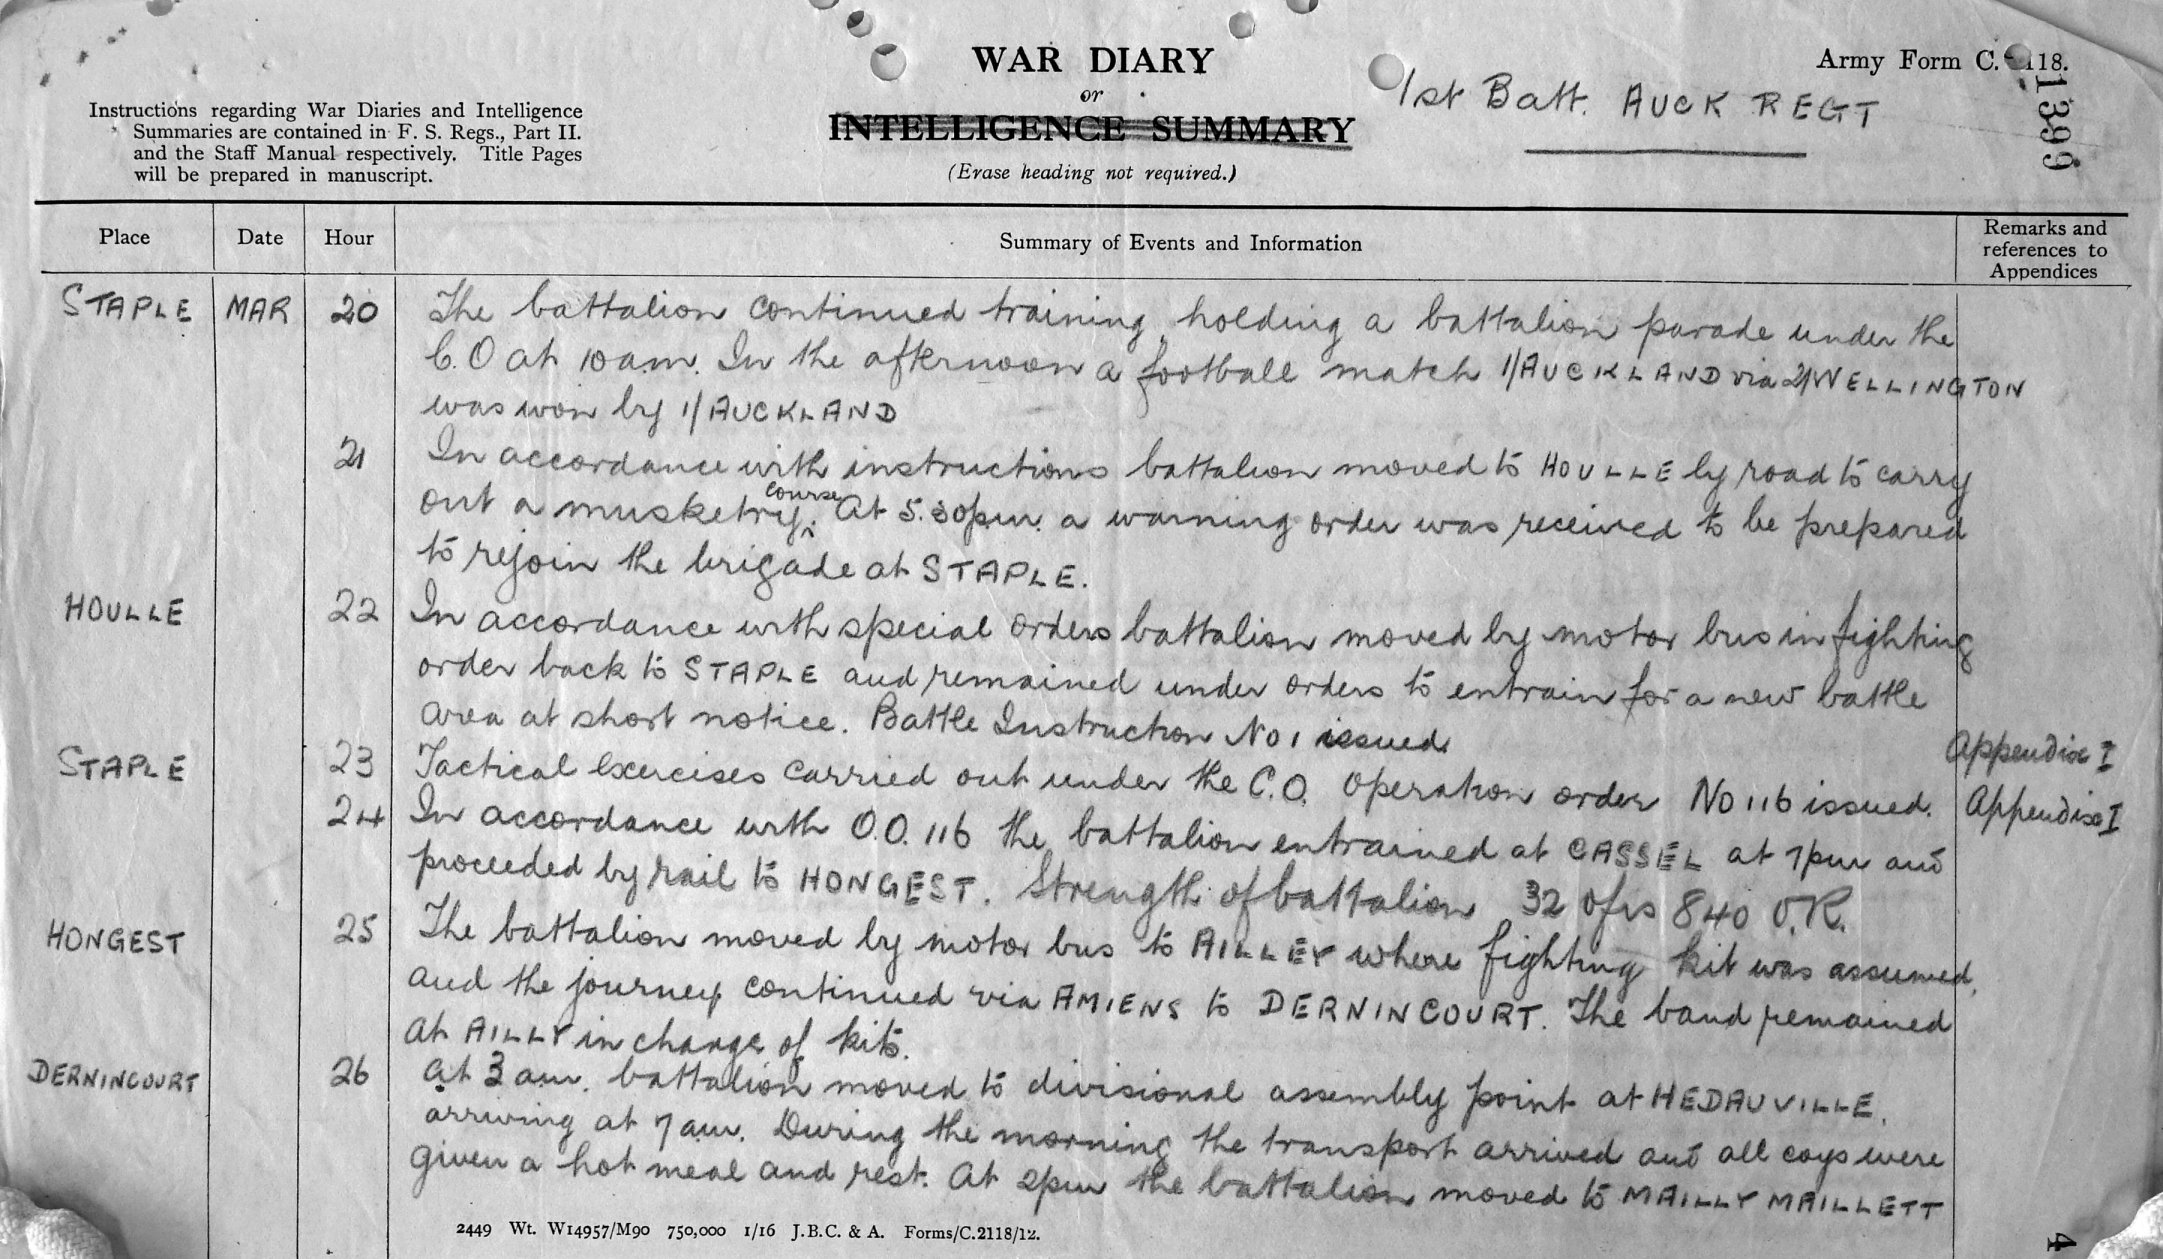 WAR DIARY
or
INTELLIGENCE SUMMARY
(Erase heading not required.)
Army Form C. 118.
1st Batt. AUCK REGT
1399
Instructions regarding War Diaries and Intelligence
Summaries are contained in F. S. Regs., Part II.
and the Staff Manual respectively. Title Pages
will be prepared in manuscript.
Place Date Hour Summary of Events and Information Remarks and
references to
Appendices
STAPLE MAR 20 The battalion continued training, holding a battalion parade under the
C.O at 10 a.m. In the afternoon a football match 1/AUCKLAND via 2/WELLINGTON
was won by 1/AUCKLAND
21 In accordance with instructions battalion moved to HOULLE by road to carry
out a musketry course. At 5.30pm. a warning order was received to be prepared
to rejoin the brigade at STAPLE.
HOULLE 22 In accordance with special orders battalion moved by motor bus in fighting
order back to STAPLE and remained under orders to entrain for a new battle
area at short notice. Battle Instruction No 1 issued. Appendix I
STAPLE 23 Tactical exercises carried out under the C.O. Operation order No 116 issued. Appendix I
24 In accordance with O.O. 116 the battalion entrained at CASSEL at 7pm and
proceeded by rail to HONGEST. Strength of battalion 32 ofrs 840 O.R.
HONGEST 25 The battalion moved by motor bus to AILLEY where fighting kit was assumed,
and the journey continued via AMIENS to DERNINCOURT. The band remained
at AILLY in charge of kits.
DERNINCOURT 26 At 3 am. battalion moved to divisional assembly point at HEDAUVILLE.
arriving at 7 am. During the morning the transport arrived and all coys were
given a hot meal and rest. At 2pm the battalion moved to MAILLY MAILLETT
2449 Wt. W14957/M90 750,000 1/16 J.B.C. & A. Forms/C.2118/12.
4